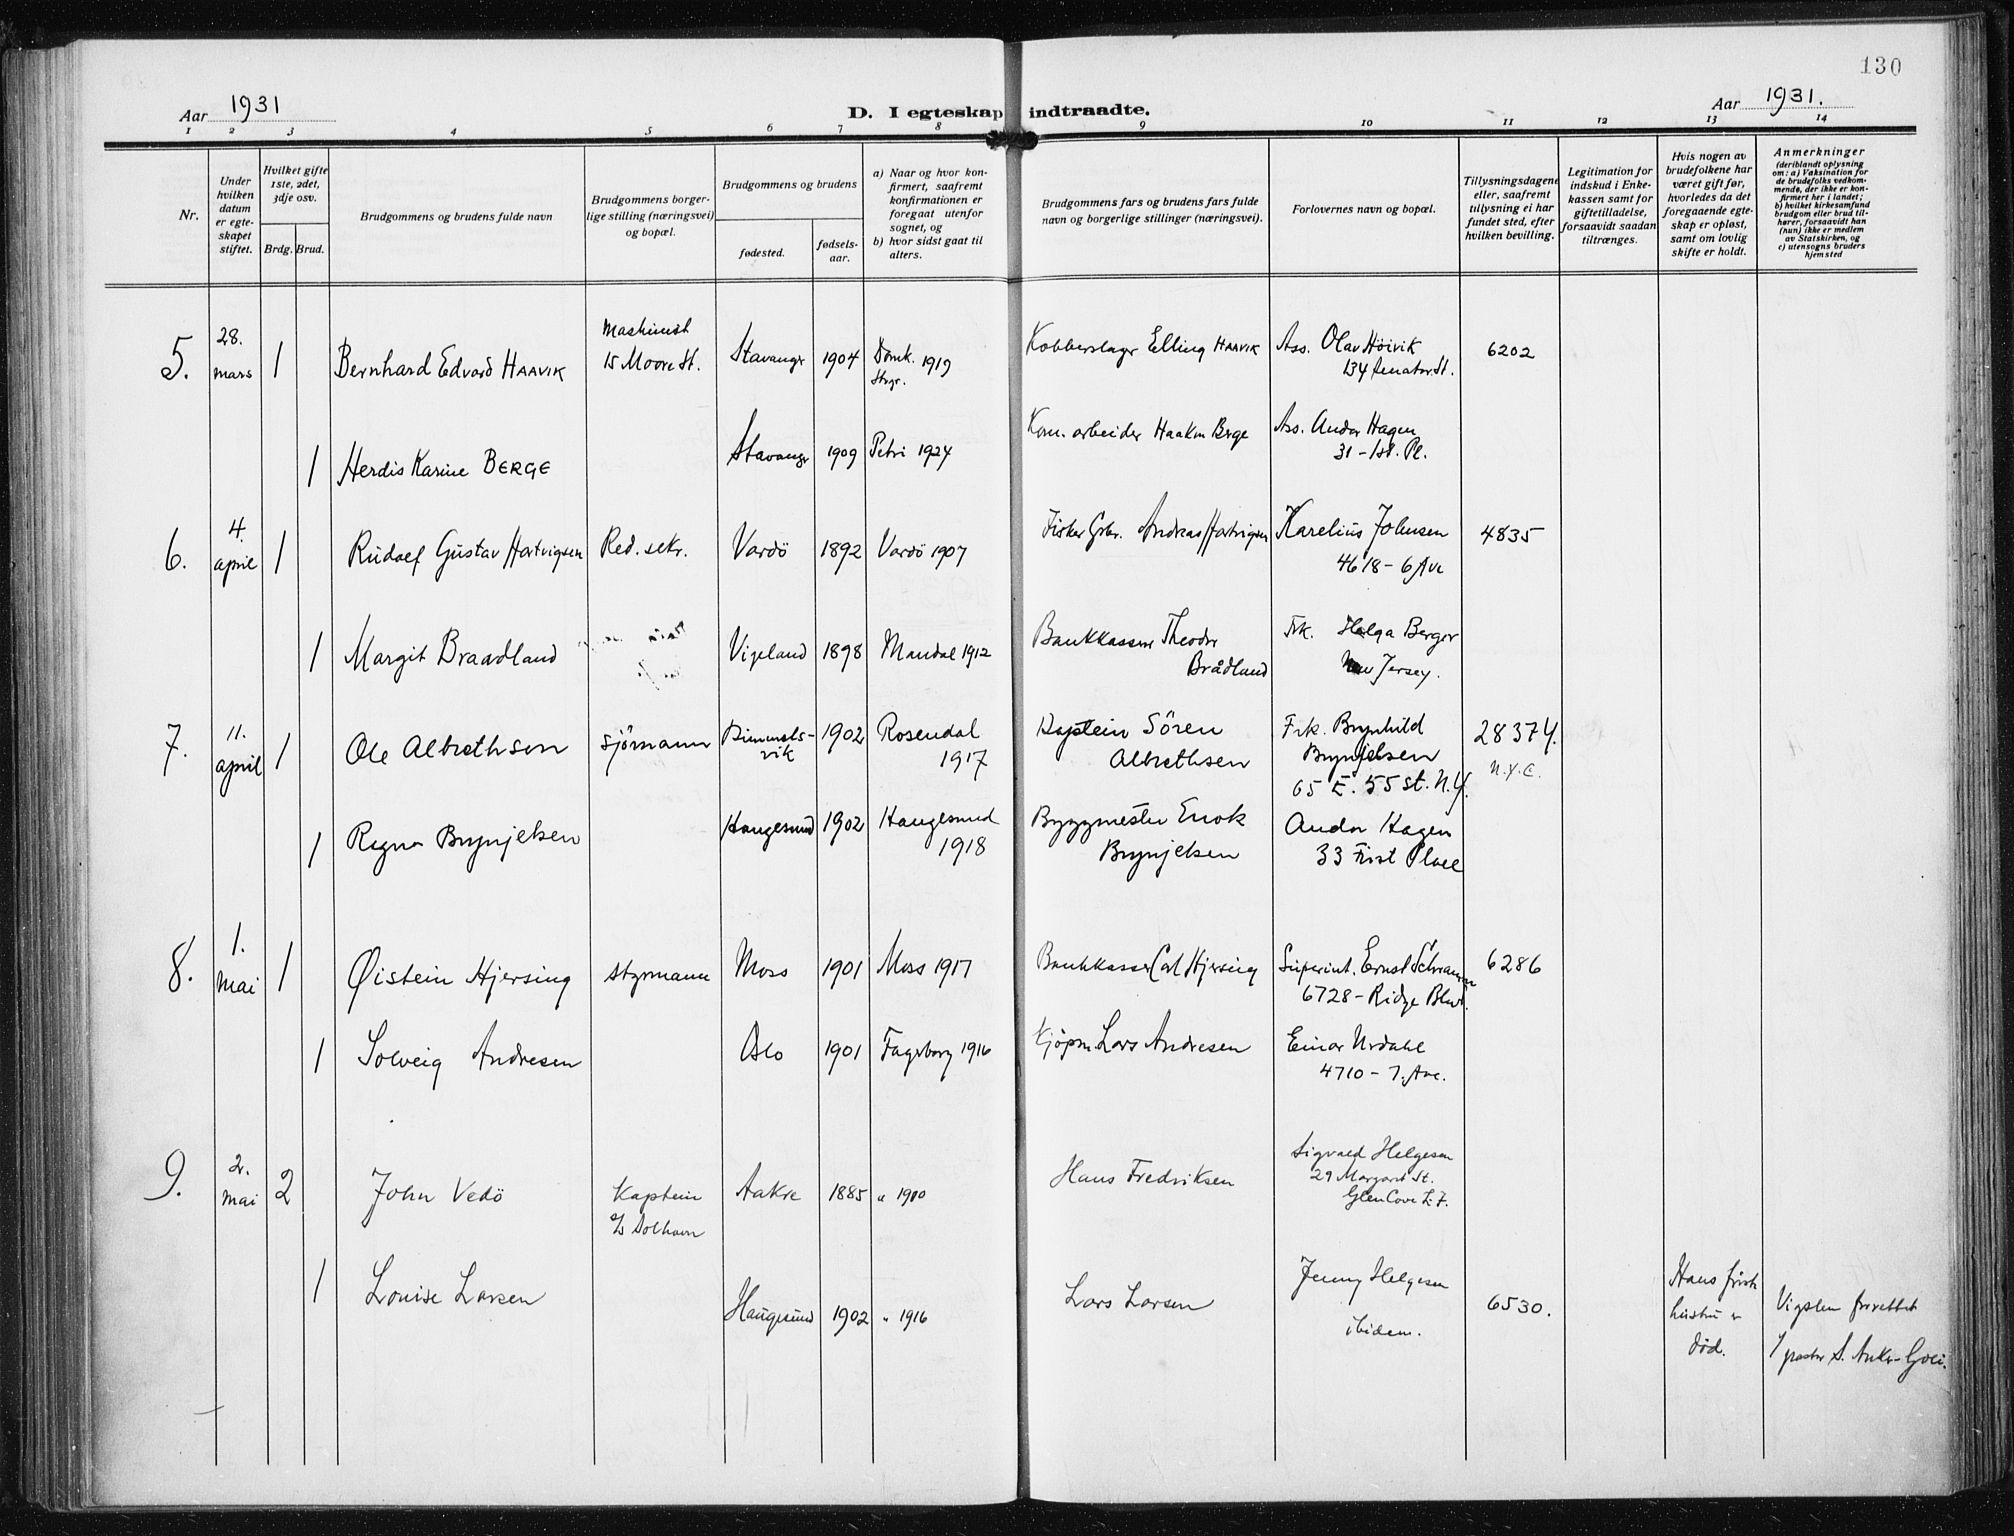 130
Aar 1931
D. I egteskap indtraadte.
Aar 1931.
1 2 3 4 5 6 7 8 9 10 11 12 13 14
Nr.
Under hvilken datum er egteskapet stiftet.
Hvilket gifte 1ste, 2det, 3dje osv.
Brdg. Brud.
Brudgommens og brudens fulde navn
Brudgommens borgerlige stilling (næringsvei) og bopæl.
Brudgommens og brudens
fødested.
fødselsaar.
a) Naar og hvor konfirmert, saafremt konfirmationen er foregaat utenfor sognet, og
b) hvor sidst gaat til alters.
Brudgommens fars og brudens fars fulde navn og borgerlige stillinger (næringsvei).
Forlovernes navn og bopæl.
Tillysningsdagene eller, saafremt tillysning ei har fundet sted, efter hvilken bevilling.
Legitimation for indskud i Enkekassen samt for giftetilladelse, forsaavidt saadan tiltrænges.
Hvis nogen av brudefolkene har været gift før, hvorledes da det foregaaende egteskap er opløst, samt om lovlig skifte er holdt.
Anmerkninger
(deriblandt oplysning om: a) Vaksination for de brudefolks vedkommende, der ikke er konfirmert her i landet; b) hvilket kirkesamfund brudgom eller brud tilhører, forsaavidt han (hun) ikke er medlem av Statskirken, og c) utensogns bruders hjemsted
5. 28. mars 1 Bernhard Edvard HAAVIK Maskinist 15 Moore St. Stavanger 1904 Domk. Stvgr. 1919 Kobberslager Elling HAAVIK Ass. Olav Høivik 134 Senator St. 6202
1 Herdis Karine BERGE Stavanger 1909 Petri 1924 Kom. arbeider Haakon Berge Ass. Andor Hagen 31 - 1st. Pl.
6. 4. april 1 Rudolf Gustav Hartvigsen Red. sekr. Vardö 1892 Vardö 1907 Fisker Andreas Hartvigsen Karelius Johnsen 4618 - 6 Ave 4835
1 Margit Braadland Vigeland 1898 Mandal 1912 Bankkasserer Theodor Brådland Frk. Helga Berger New Jersey.
7. 11. april 1 Ole Albrethsen sjömann 1902 Rosendal 1917 Kaptein Sören Albrethsen Frk. Brynhild Brynjelsen 65 E. 55 St. N.Y. 28374. N.Y.C.
1 Ragna Brynjelsen Haugesund 1902 Haugesund 1918 Byggmester Enok Brynjelsen Andor Hagen 33 First Place
8. 1. Mai 1 Øistein Hjersing styrmann Moss 1901 Moss 1917 Bankkasserer Carl Hjersing Superint. Ernst Schramm 6728 - Ridge Blvd. 6286
1 Solveig Andresen Oslo 1901 Fagerborg 1916 Kjøpm. Lars Andresen Einar Urdahl 4710 - 7. Ave.
9. 2. Mai 2 John Vedö Kaptein S/S Solhavn Aakre 1885 " 1900 Hans Fredriksen Sigvald Helgesen 29 Margaret St. Glen Cove L.I.
1 Louise Larsen Haugesund 1902 " 1916 Lars Larsen Jenny Helgesen ibidem. 6530. Hans første hustru er död. Vigslen forrettet / pastor S. Anker-Goli.